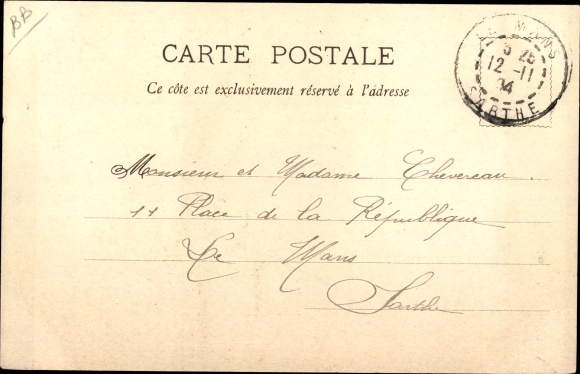 BB
LE MANS
3 25
12 -11
04
SARTHE
CARTE POSTALE
Ce côte est exclusivement réservé à l'adresse
Monsieur et Madame Chevereau
11 Place de la République
Le Mans
Sarthe